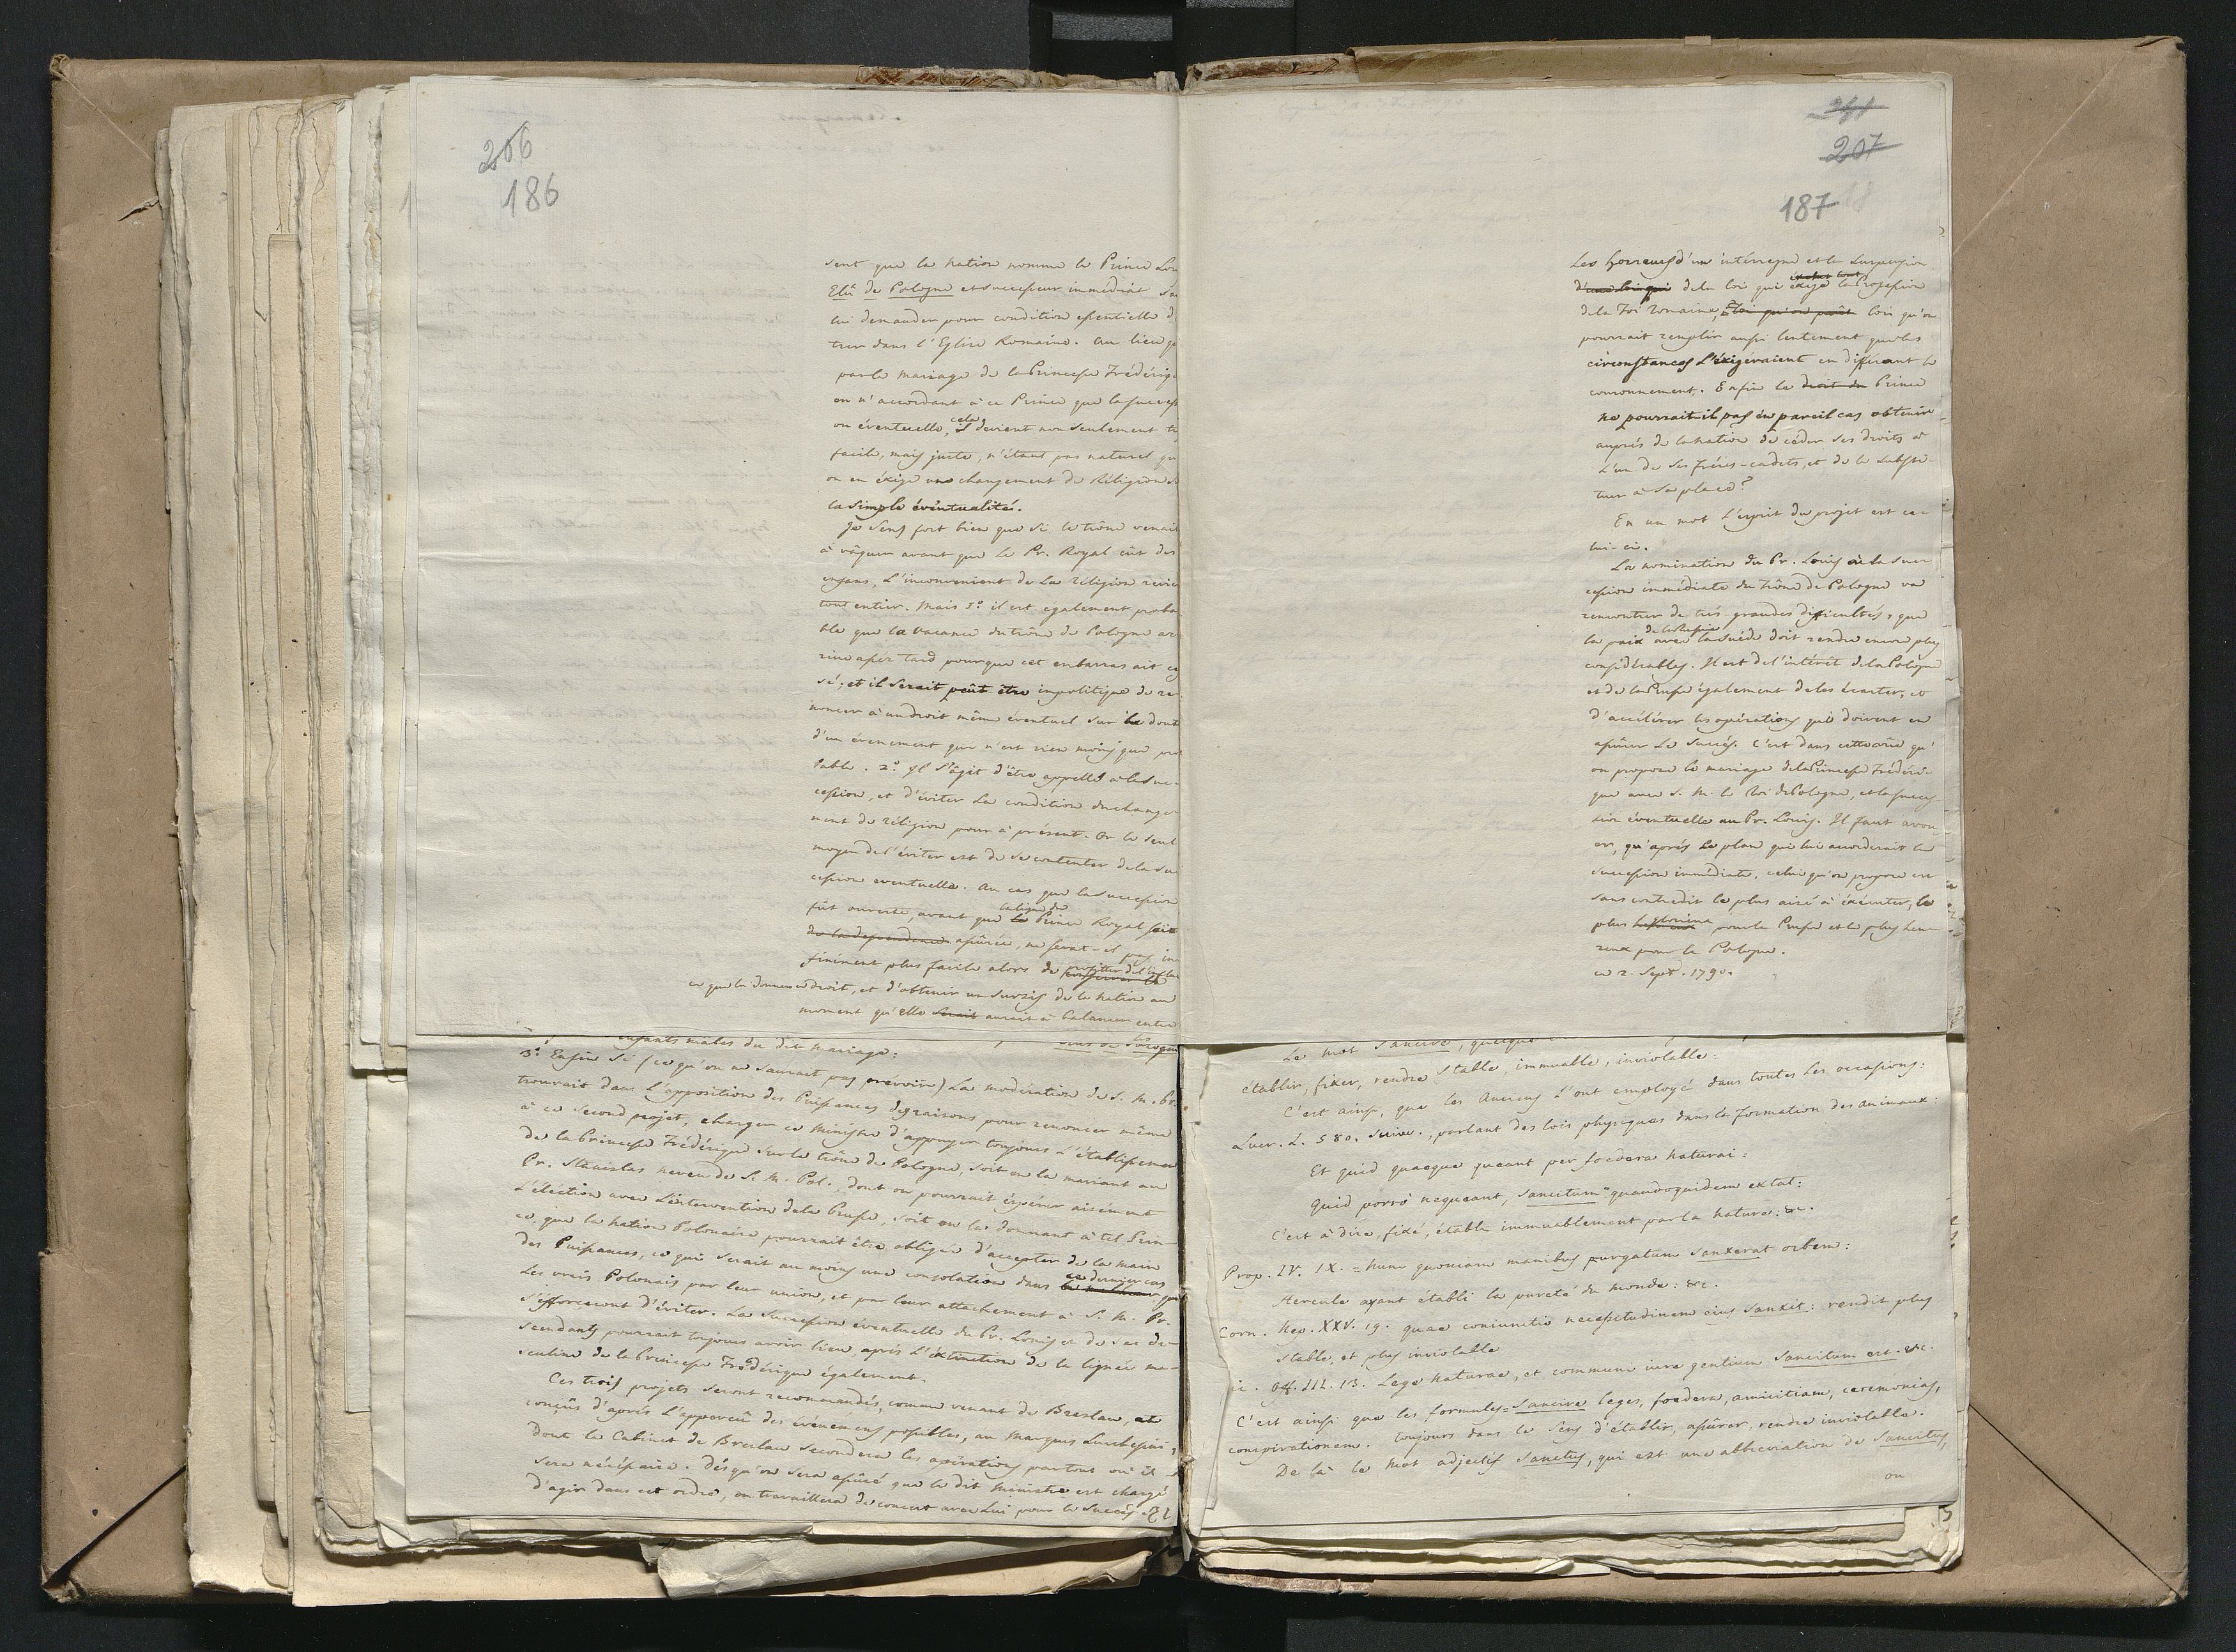 206
186
sent que la nation nomme le Prince Lou
Elû de Pologne et successeur immédiat sa
lui demander pour condition essentielle d
trer dans l'Eglise Romaine. Au lieu q
par le mariage de la Princesse Frédériq
en n'accordant à ce Prince que la success
on éventuelle, cela devient non seulement tr
facile, mais juste, n'étant pas naturel qu
on en éxige un changement de Réligion
la simple éventualité.
Je sens fort bien que si le trône venait
à vâquer avant que le Pr. Royal eût des
enfans, L'inconvenient de la réligion revie
tout entier. Mais 1º. il est egalement proba
ble que la vacance du trône de Pologne ar
rive assés tard pourque cet embarras ait ces
sé; et il serait peût être impolitique de re-
noncer à un droit même éventuel sur le dout
d'un évenement qui n'est rien moins que pro
bable. 2º. Il s'agit d'être appellé à la suc-
cession, et d'éviter la condition du change-
ment de réligion pour à présent. Or le seul
moyen de l'éviter est de se contenter de la suc
cession eventuelle. Au cas que la succession
fût ouverte, avant que la ligne du Prince Royal soit
de la dependance assûrée, ne serat-il pas in-
finiment plus facile alors de profiter de l'influen
ce que lui donne ce droit, et d'obtenir un sursis de la nation au
moment qu'elle serait aurait à balancer entre
enfants mâles du dit mariage:
3º. Enfin si (ce qu'on ne saurait pas prévoir) La modération de S. M. Pr.
trouvait dans L'opposition des Puissances des raisons pour renoncer même
à ce second projet, charger ce Ministre d'appuyer toujours L'établissement
de la Princesse Frédérique sur le trône de Pologne, soit en la mariant au
Pr. Stanislas neveu de S. M. Pol., dont on pourrait éspérer aisement
L'élection avec L'intervention de la Prusse, soit en la donnant à tel Prin-
ce, que la nation Polonaise pourrait être obligée d'accepter de la main
des Puissances, ce qui serait au moins une consolation dans ce dernier cas que
les vrais Polonais par leur union, et par leur attachement à S. M. Pr.
s'efforceront d'éviter. La succession éventuelle du Pr. Louis et de ses de-
scendants pourrait toujours avoir lieu, après L'éxtinction de la lignée ma-
sculine de la Princesse Frédérique également.
Ces trois projets seront recommandés, comme venant de Breslau, et
conçûs d'après L'apperçû des événemens possibles, au Marquis Lucchesini,
dont le Cabinet de Breslau secondera les opérations partout où il
sera nécéssaire. Dès qu'on sera assûré que le dit Ministre est chargé
d'agir dans cet ordre, on travaillera de concert avec Lui pour le succès.
207
187
Les horreurs d'un intérregne et la suspension
d'une loi qui de la loi qui éxige la profession
de la Foi romaine, loi qu'on
pourrait remplir aussi lentement que les
circonstances L'éxigeraient en differant le
couronnement. Enfin le droit du Prince
ne pourrait-il pas en pareil cas obtenir
auprès de la nation de céder ses droits à
L'un de ses fréres-cadets, et de le substi-
tuer à sa place?
En un mot L'esprit du projet est ce-
lui-ci.
La nomination du Pr. Louis à la suc-
cession immédiate du trône de Pologne va
rencontrer de trés grandes difficultés, que
la paix de la Russie avec la Suède doit rendre encore plus
considérables. Il est de l'intérêt de la Pologne
et de la Prusse également de les écarter, et
d'accélérer les opérations qui doivent en
assûrer le succès. C'est dans cette vûe qu'
on propose le mariage de la Princesse Frédéri-
que avec S. M. le Roi de Pologne, et la succes-
sion éventuelle au Pr. Louis. Il faut avou-
er, qu'après le plan qui lui accorderait la
succession immédiate, celui qu'on propose est
sans contredit le plus aisé à éxécuter, le
plus glorieux pour la Prusse et le plus heu-
reux pour la Pologne.
ce 2. Sept. 1790.
Le mot Sancire,
établir, fixer, rendre stable, immuable, inviolable:
C'est ainsi, que les Anciens l'ont employé dans toutes les occasions:
Lucr. L. 580. suiv., parlant des lois physiques dans la formation des animaux:
Et quid quaeque queant per foedera naturai:
Quid porrò nequeant, sancitum quandoquidem extat:
C'est à dire, fixé, établi immuablement par la nature: &c.
Prop. IV. IX. = hunc quoniam manibus purgatum sanxerat orbem:
Hercule ayant établi la pureté du monde: &c.
Corn. Nep. XXV. 19. quae coniunctio necessitudinem eius sanxit: rendit plus
stable, et plus inviolable
ic. Off. III. 13. Lege naturae, et communi iure gentium sancitum est. &c.
C'est ainsi que les formules = Sancire leges, foedera, amicitiam, ceremonias,
conspirationem. toujours dans le sens d'établir, assûrer, rendre inviolable.
De là le mot adjectif Sanctus, qui est une abbreviation de Sancitus,
ou